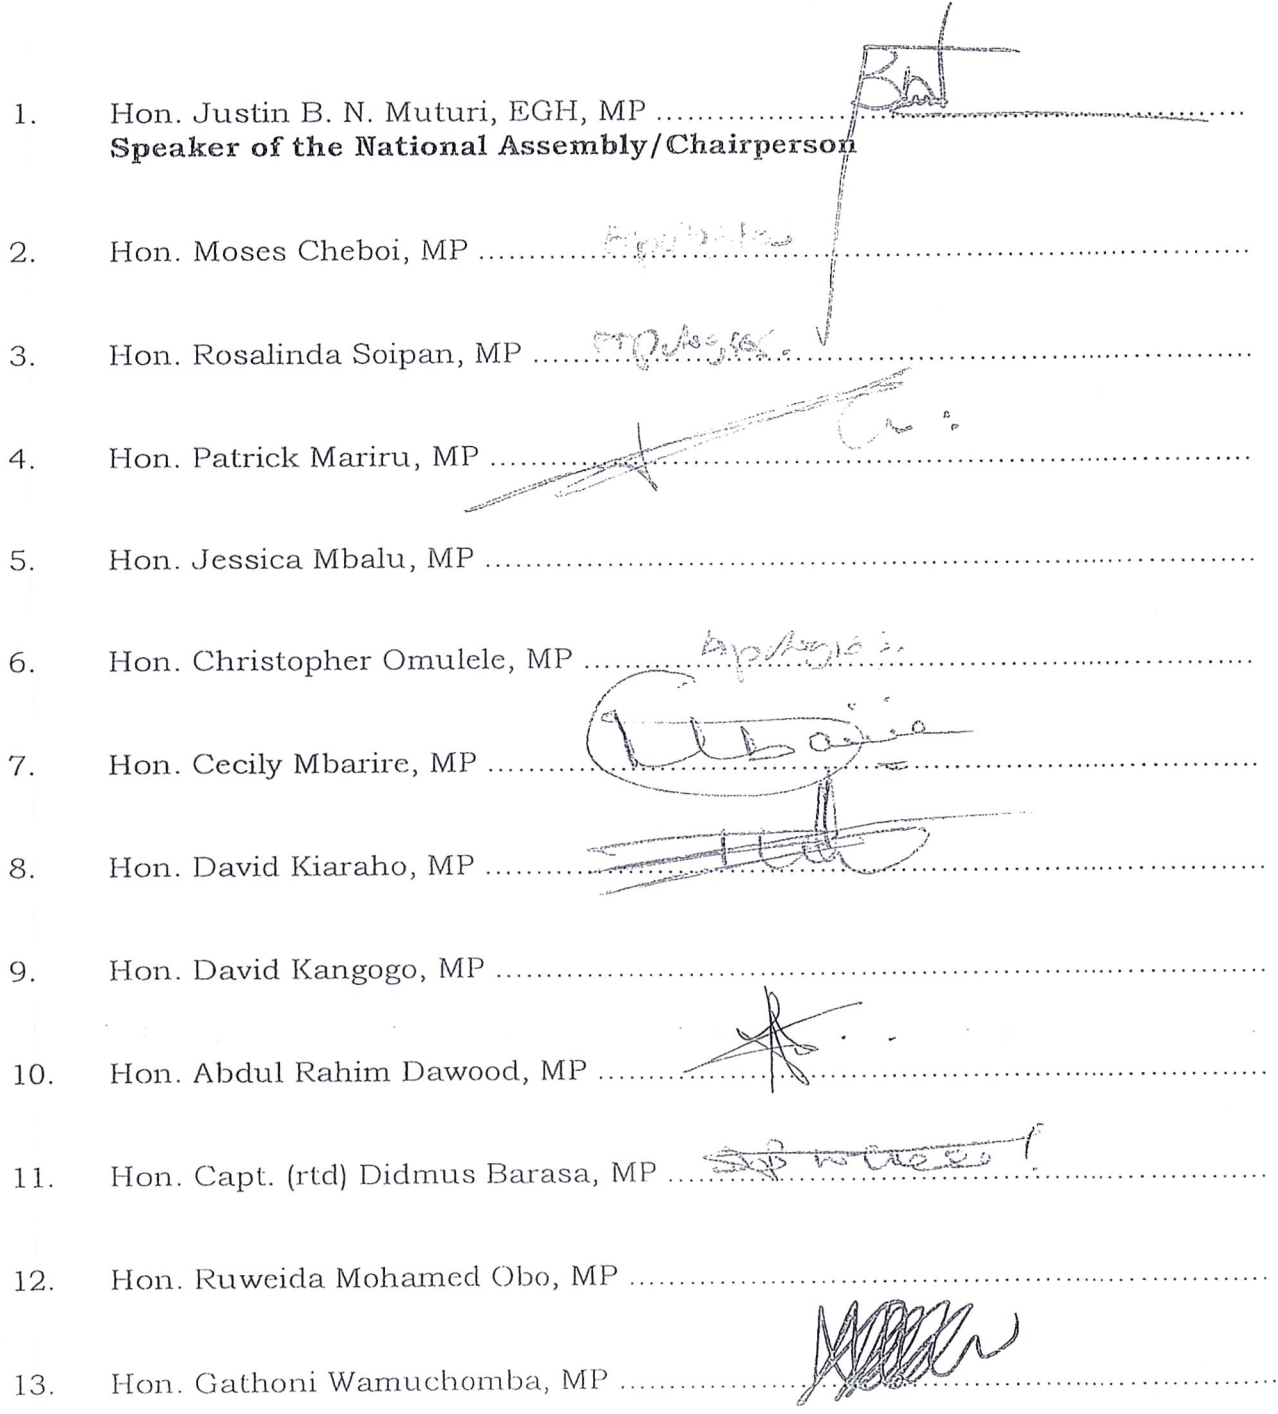 1. Hon. Justin B. N. Muturi, EGH, MP ........................................
Speaker of the National Assembly/Chairperson
2. Hon. Moses Cheboi, MP ........................................
3. Hon. Rosalinda Soipan, MP ........................................ Apologies.
4. Hon. Patrick Mariru, MP ........................................
5. Hon. Jessica Mbalu, MP ........................................
6. Hon. Christopher Omulele, MP ........................................ Apologies.
7. Hon. Cecily Mbarire, MP ........................................
8. Hon. David Kiaraho, MP ........................................
9. Hon. David Kangogo, MP ........................................
10. Hon. Abdul Rahim Dawood, MP ........................................
11. Hon. Capt. (rtd) Didmus Barasa, MP ........................................
12. Hon. Ruweida Mohamed Obo, MP ........................................
13. Hon. Gathoni Wamuchomba, MP ........................................